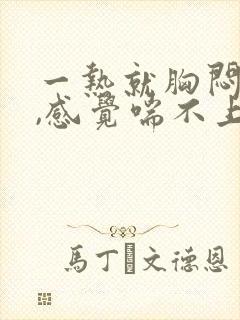 一熱就胸悶
,感覺喘不上
馬丁•文德恩